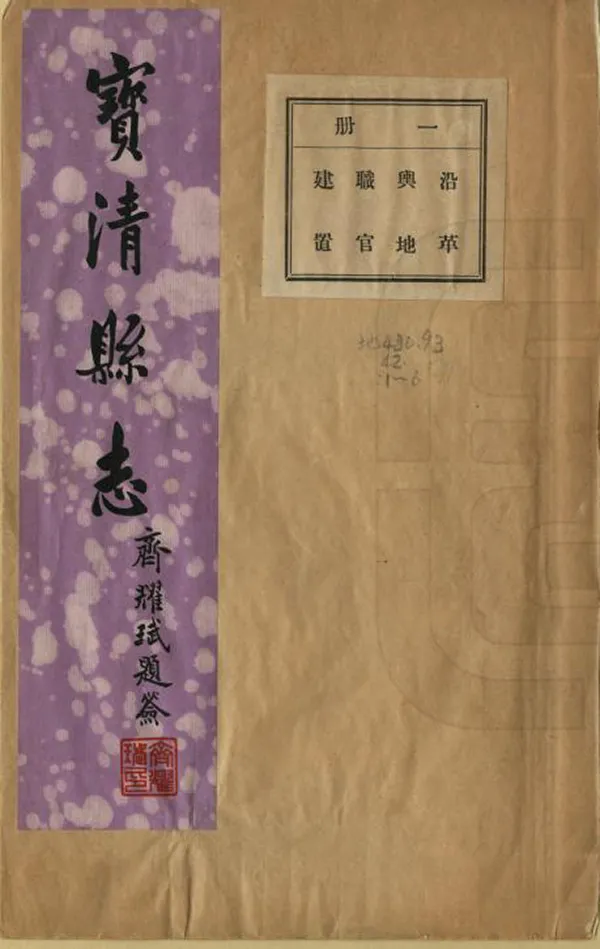 寶清縣志
齊耀珷題簽
齊耀珷印
一册
沿革
輿地
職官
建置
地490.93
42
1-6